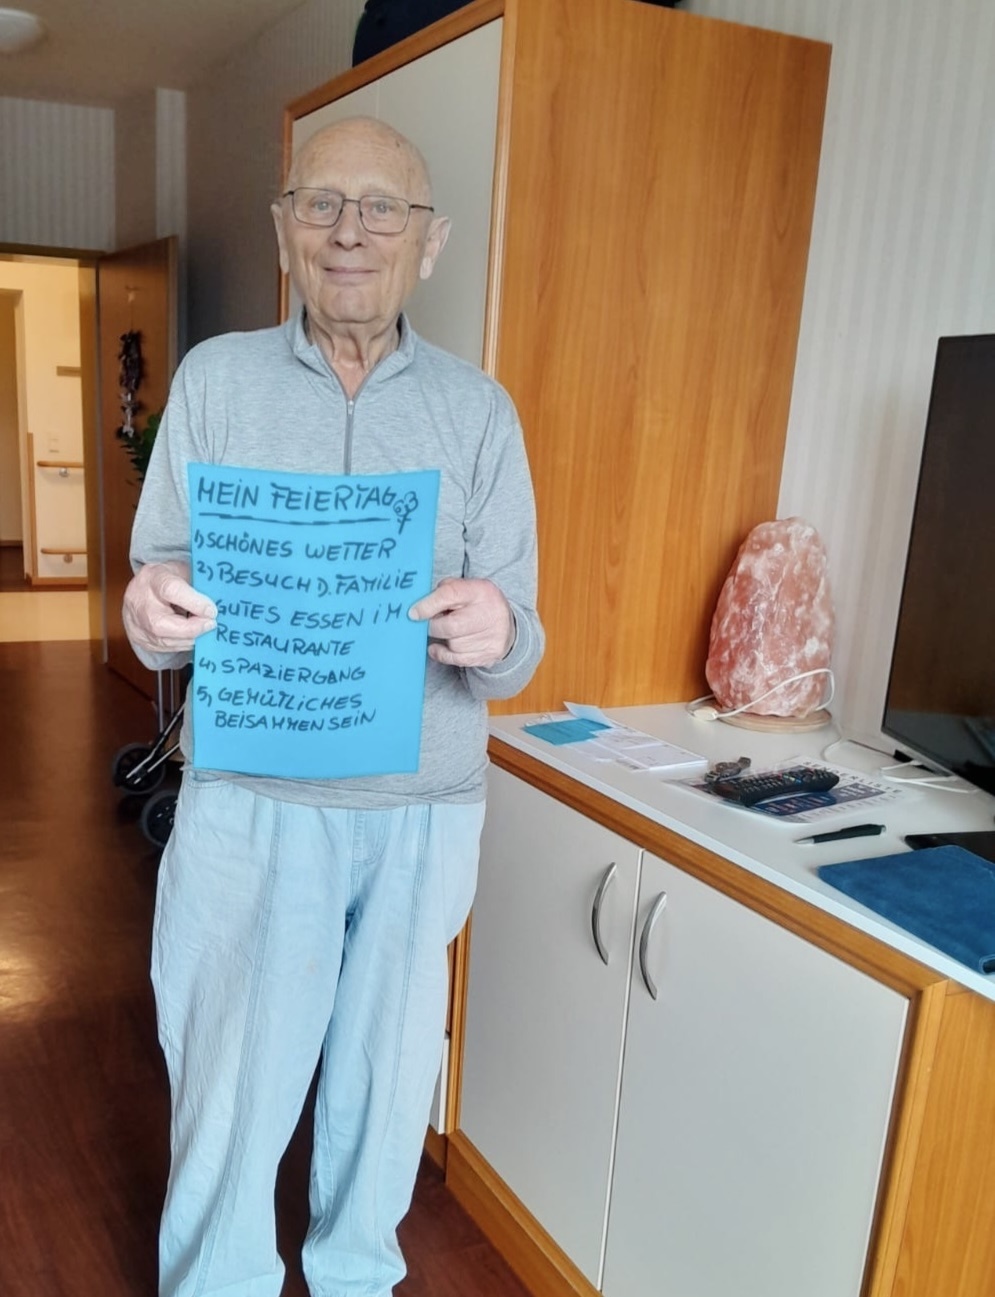 MEIN FEIERTAG
1) SCHÖNES WETTER
2) BESUCH D. FAMILIE
GUTES ESSEN IM
RESTAURANTE
4) SPAZIERGANG
5) GEMÜTLICHES
BEISAMMENSEIN